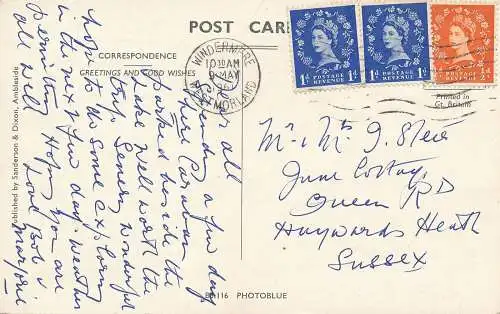 POST CARD
CORRESPONDENCE
GREETINGS AND GOOD WISHES
WINDERMERE
10 AM
MAY
WESTMORLAND
POSTAGE
REVENUE
1d 1d
POSTAGE
REVENUE
1d 1d
POSTAGE
REVENUE
Printed in
Gt. Britain
Published by Sanderson & Dixon, Ambleside
all
Spending a few days
Caravan
parked beside the
Lake well worth the
Scenery wonderful
hope to do some exploring
in the next few days weather
permitting Hope you are
all well Love Bob &
Marjorie
Mr & Mrs J.
June Cottage
Queen RD
Haywards Heath
SUSSEX
116 PHOTOBLUE